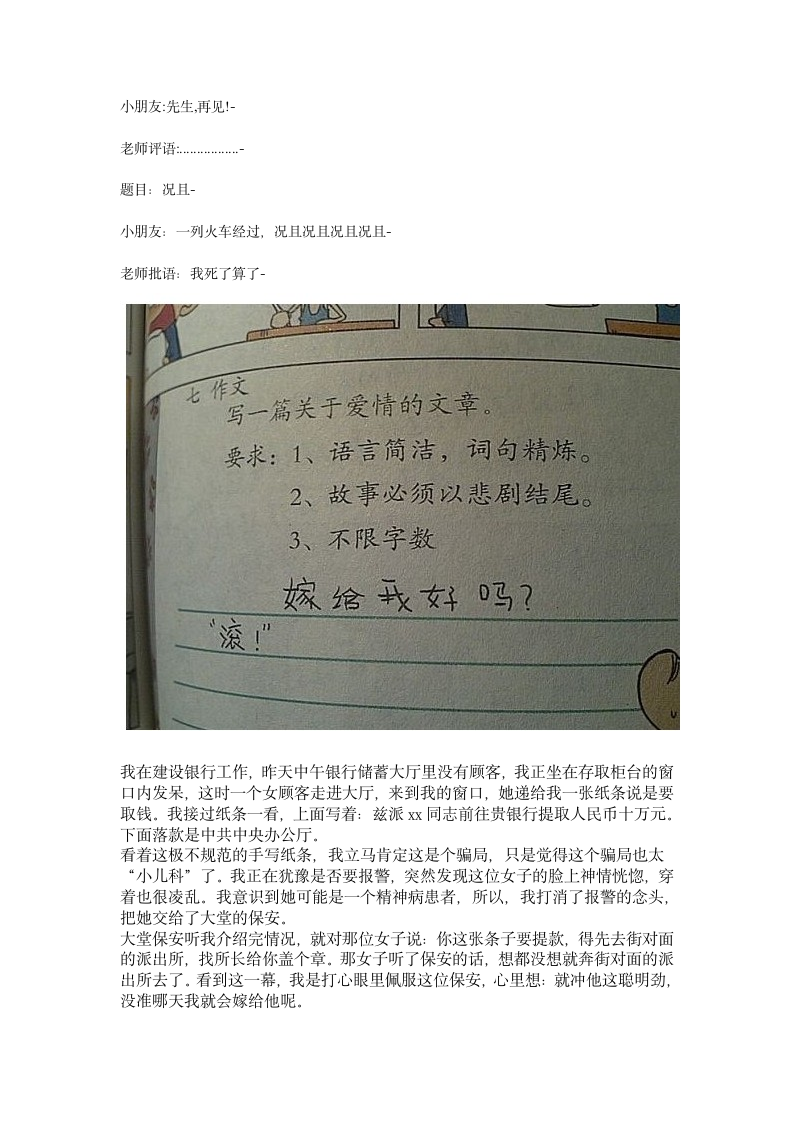 小朋友:先生,再见!-
老师评语:.................-
题目：况且-
小朋友：一列火车经过，况且况且况且况且-
老师批语：我死了算了-
七 作文
写一篇关于爱情的文章。
要求：1、语言简洁，词句精炼。
2、故事必须以悲剧结尾。
3、不限字数
嫁给我好吗?
“滚!”
我在建设银行工作，昨天中午银行储蓄大厅里没有顾客，我正坐在存取柜台的窗
口内发呆，这时一个女顾客走进大厅，来到我的窗口，她递给我一张纸条说是要
取钱。我接过纸条一看，上面写着：兹派 xx 同志前往贵银行提取人民币十万元。
下面落款是中共中央办公厅。
看着这极不规范的手写纸条，我立马肯定这是个骗局，只是觉得这个骗局也太
“小儿科”了。我正在犹豫是否要报警，突然发现这位女子的脸上神情恍惚，穿
着也很凌乱。我意识到她可能是一个精神病患者，所以，我打消了报警的念头，
把她交给了大堂的保安。
大堂保安听我介绍完情况，就对那位女子说：你这张条子要提款，得先去街对面
的派出所，找所长给你盖个章。那女子听了保安的话，想都没想就奔街对面的派
出所去了。看到这一幕，我是打心眼里佩服这位保安，心里想：就冲他这聪明劲，
没准哪天我就会嫁给他呢。